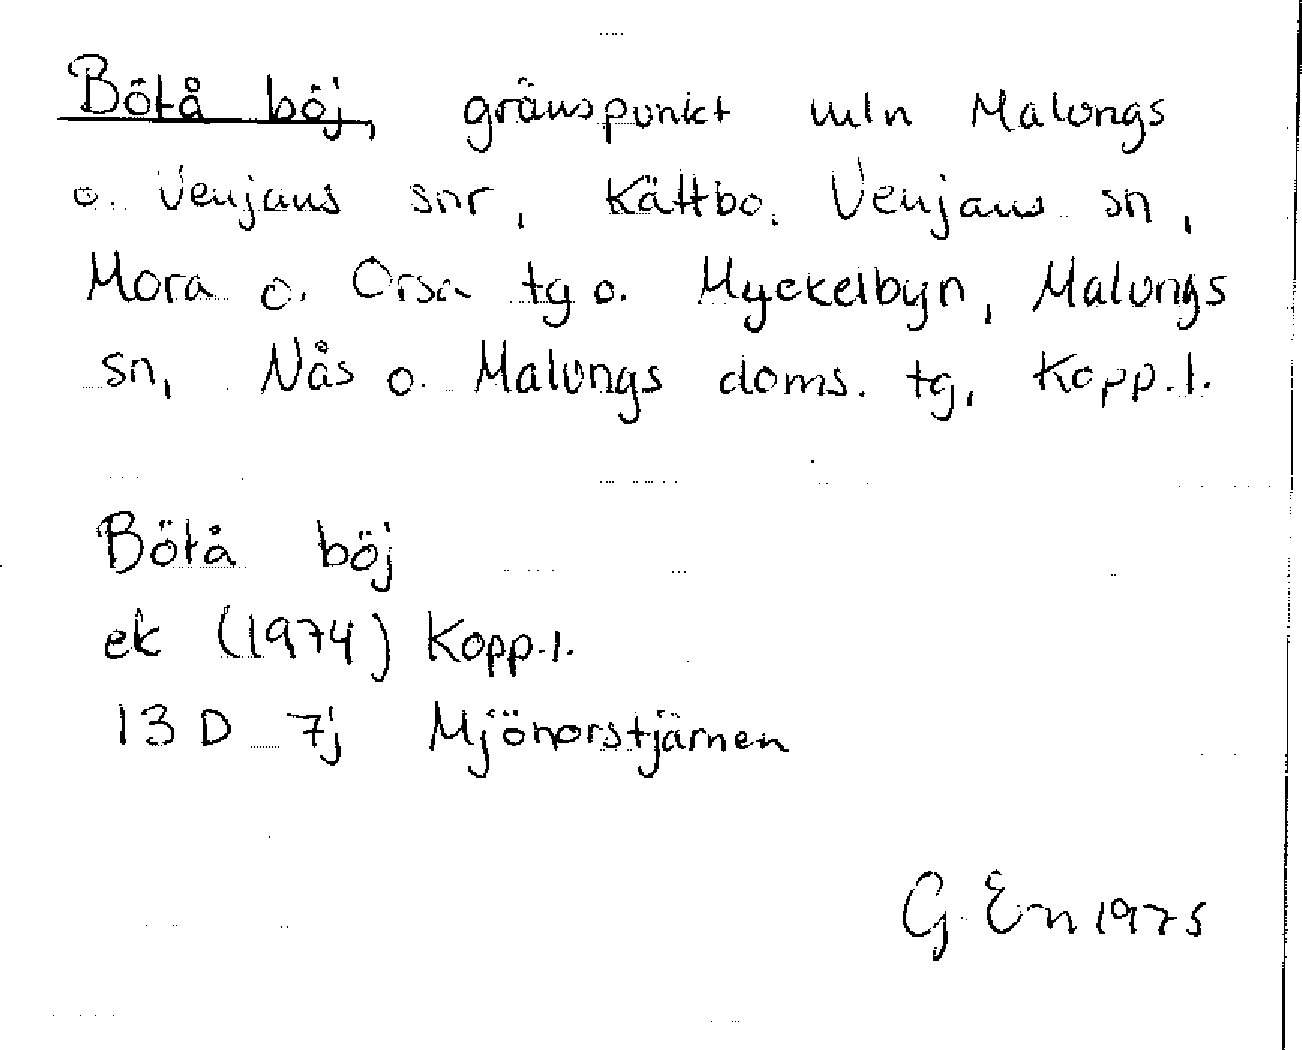 Bötå böj, gränspunkt mln Malungs
o. Venjans snr, Kättbo. Venjans sn,
Mora o. Orsa tg o. Myckelbyn, Malungs
sn, Nås o. Malungs doms. tg, Kopp.l.
Bötå böj
ek (1974) Kopp.l.
13 D 7j Mjönorstjärnen
G. Ern 1975